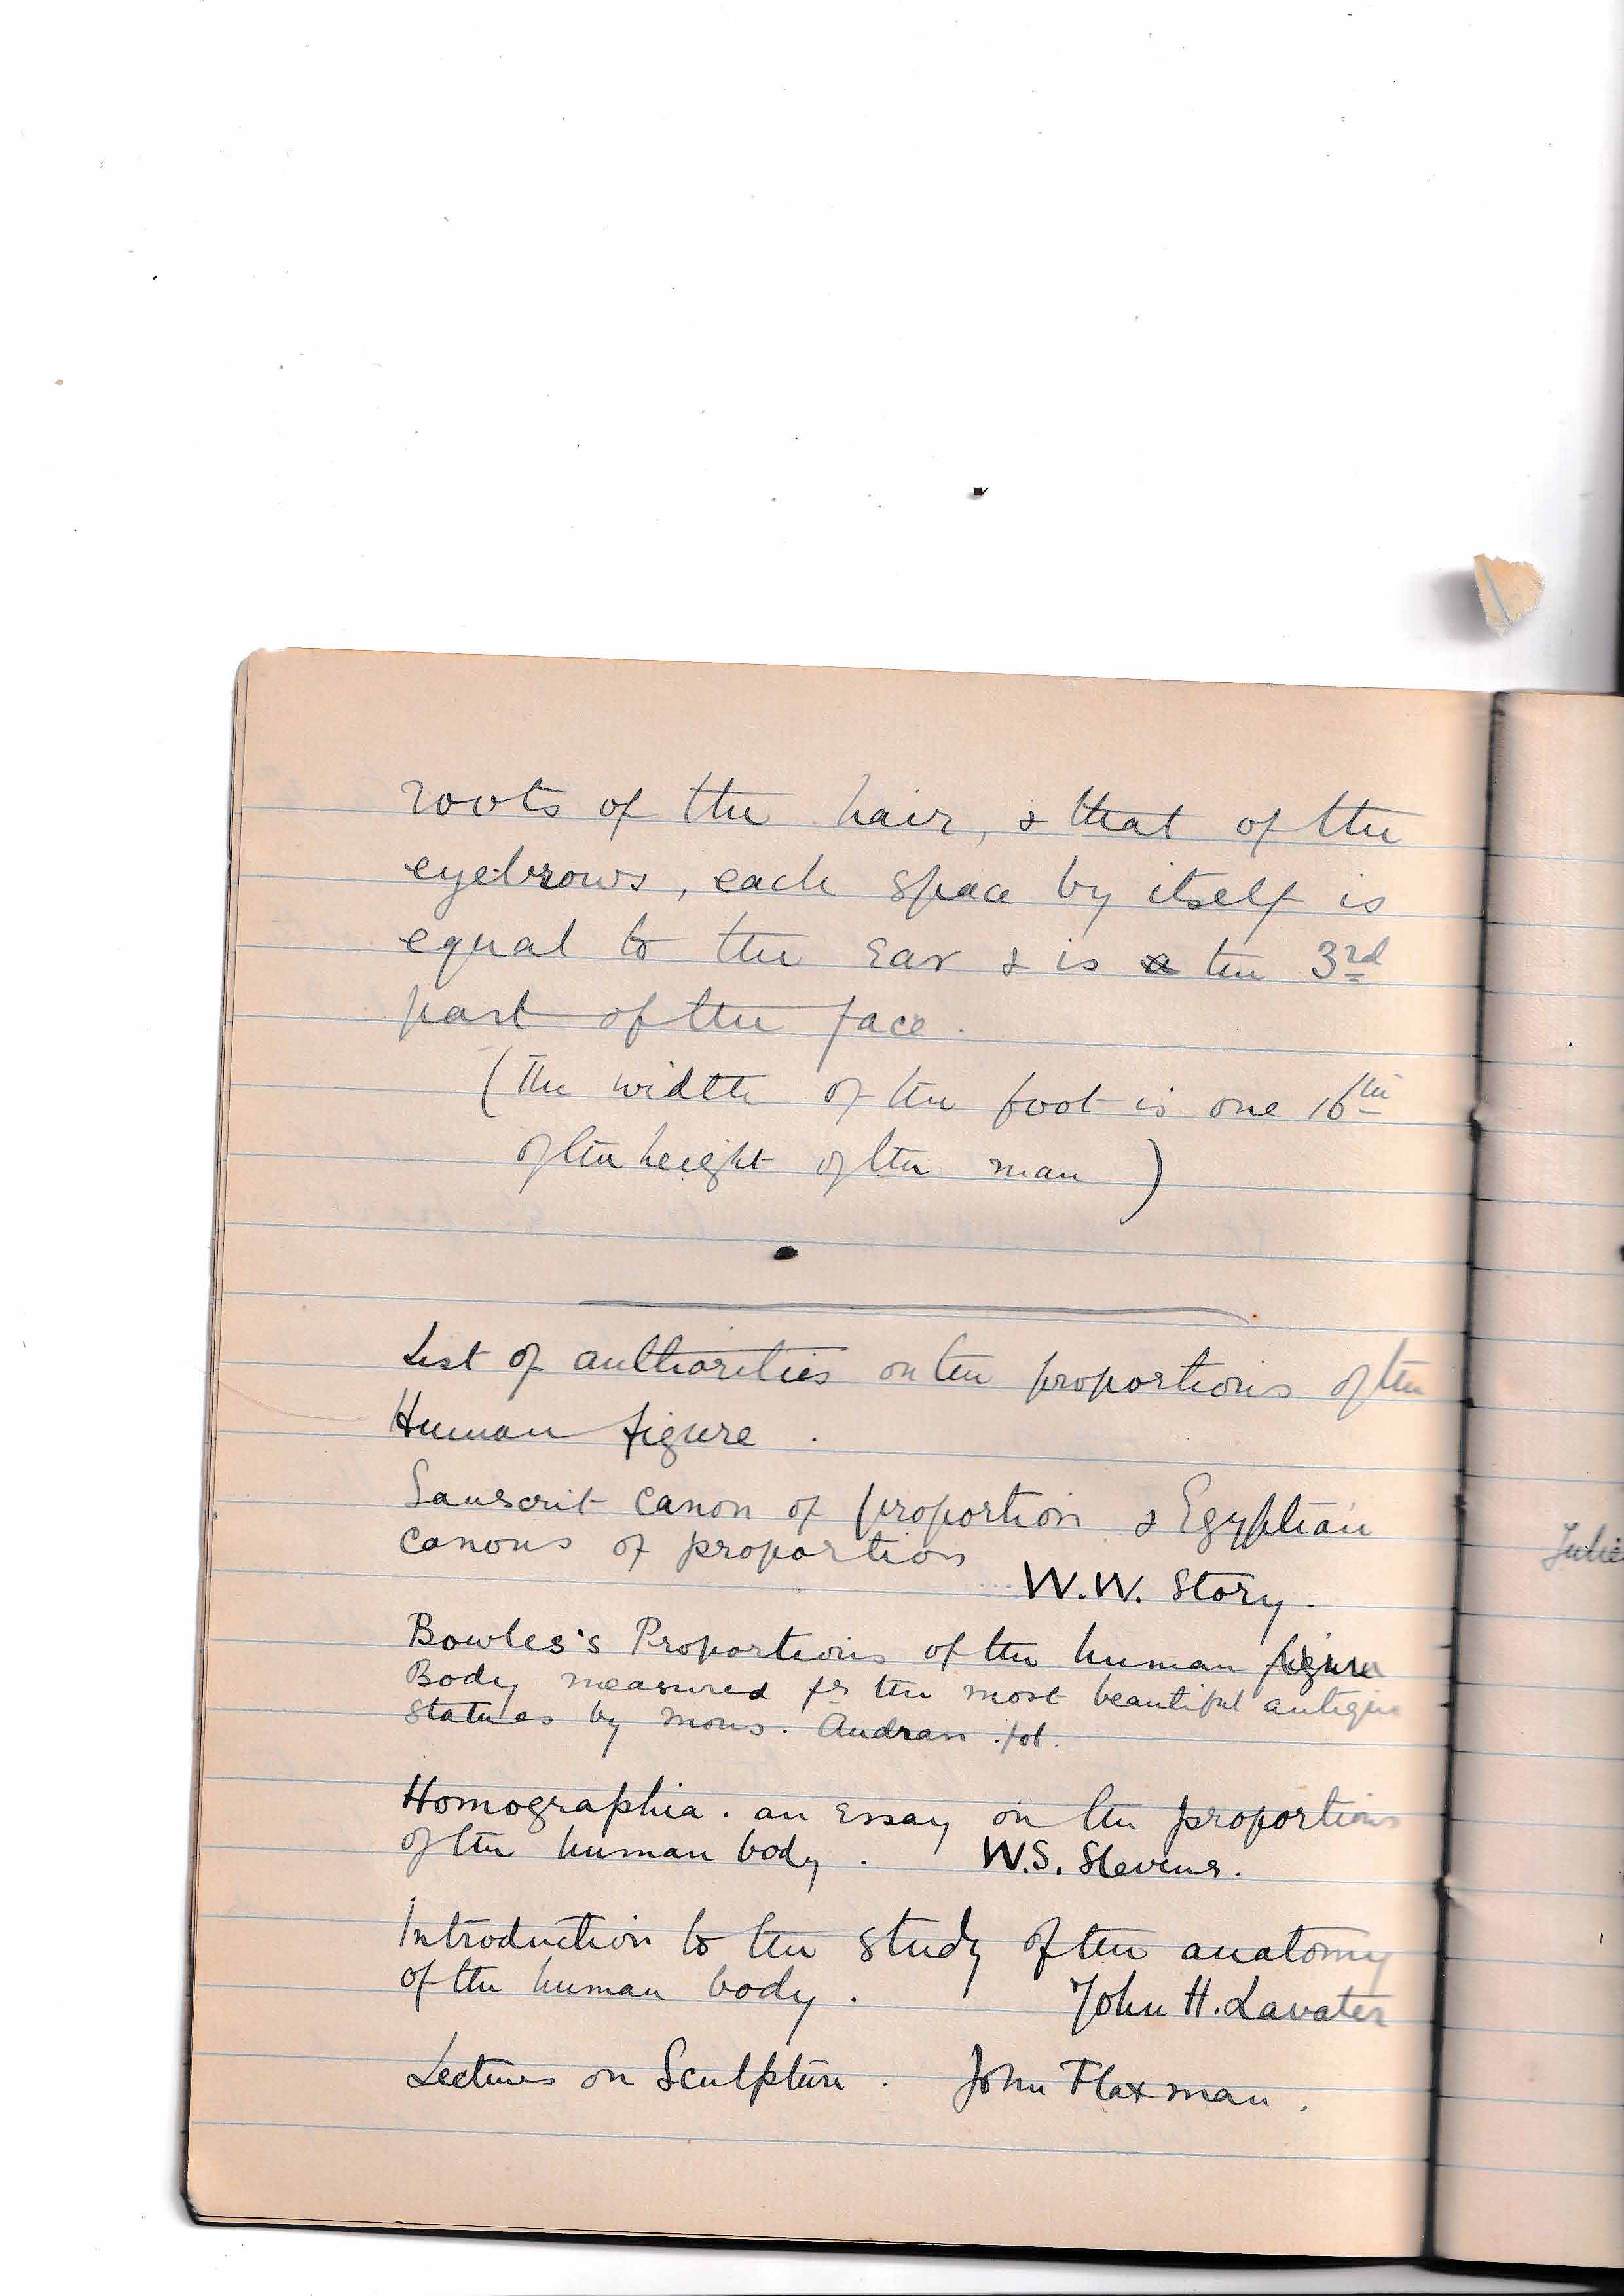 roots of the hair, & that of the
eyebrows, each space by itself is
equal to the Ear & is a the 3rd
part of the face.
(The width of the foot is one 16th
of the height of the man)
List of authorities on the proportions of the
Human figure.
Sanscrit canon of proportion & Egyptian
canons of proportion
W.W. Story.
Bowles's Proportions of the human figure
Body measured fr the most beautiful antique
statues by Mons. Audran. fol.
Homographia. an Essay on the proportions
of the human body. W.S. Stevens.
Introduction to the study of the anatomy
of the human body. John H. Lavater
Lectures on Sculpture. John Flaxman.